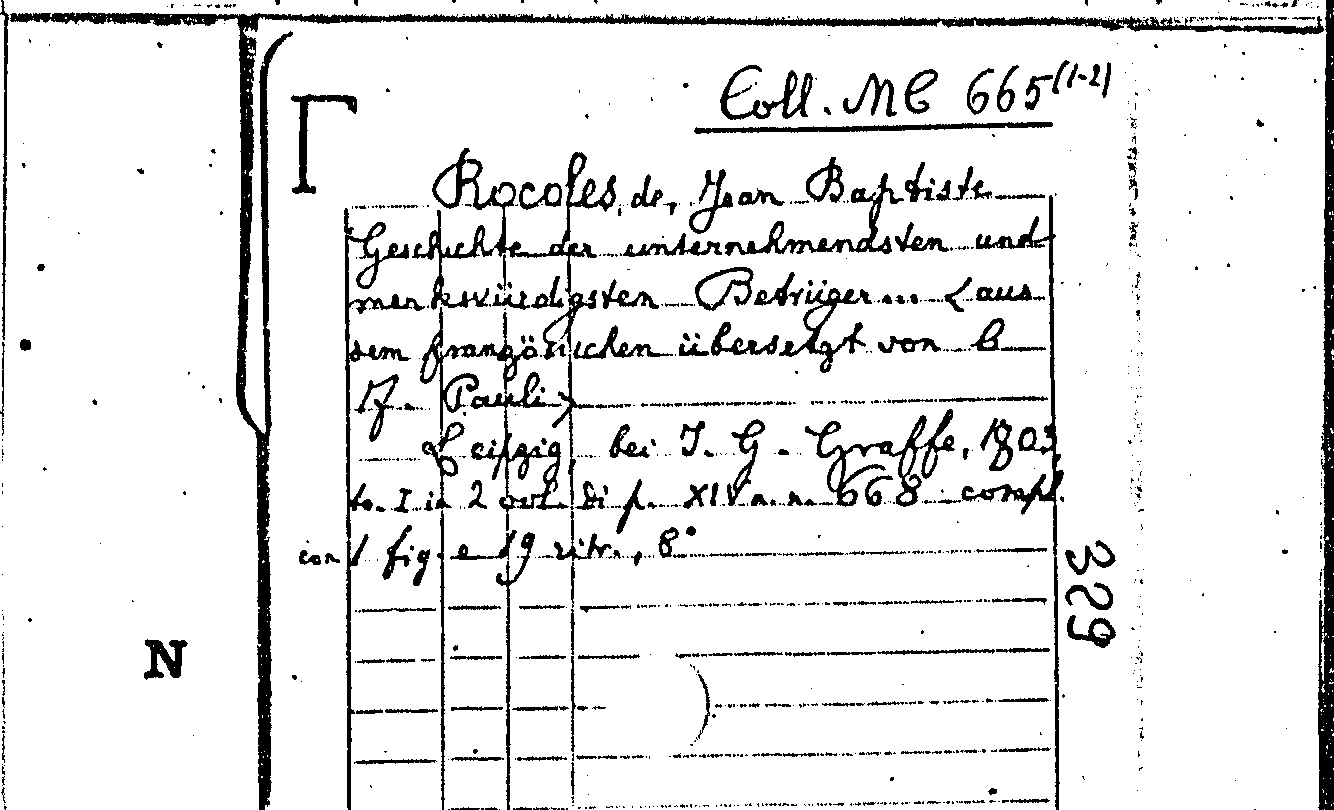 Coll. MC 665(1-2)
Rocoles, de, Jean Baptiste
Geschichte der unternehmendsten und
merkwürdigsten Betrüger... <aus
dem französischen übersetzt von C
F. Pauli>
Leipzig, bei I. G. Graffe, 1803,
to. I in 2 vol. di p. XIV n. n. 668 compl.
con 1 fig. e 19 ritr., 8°
329
N